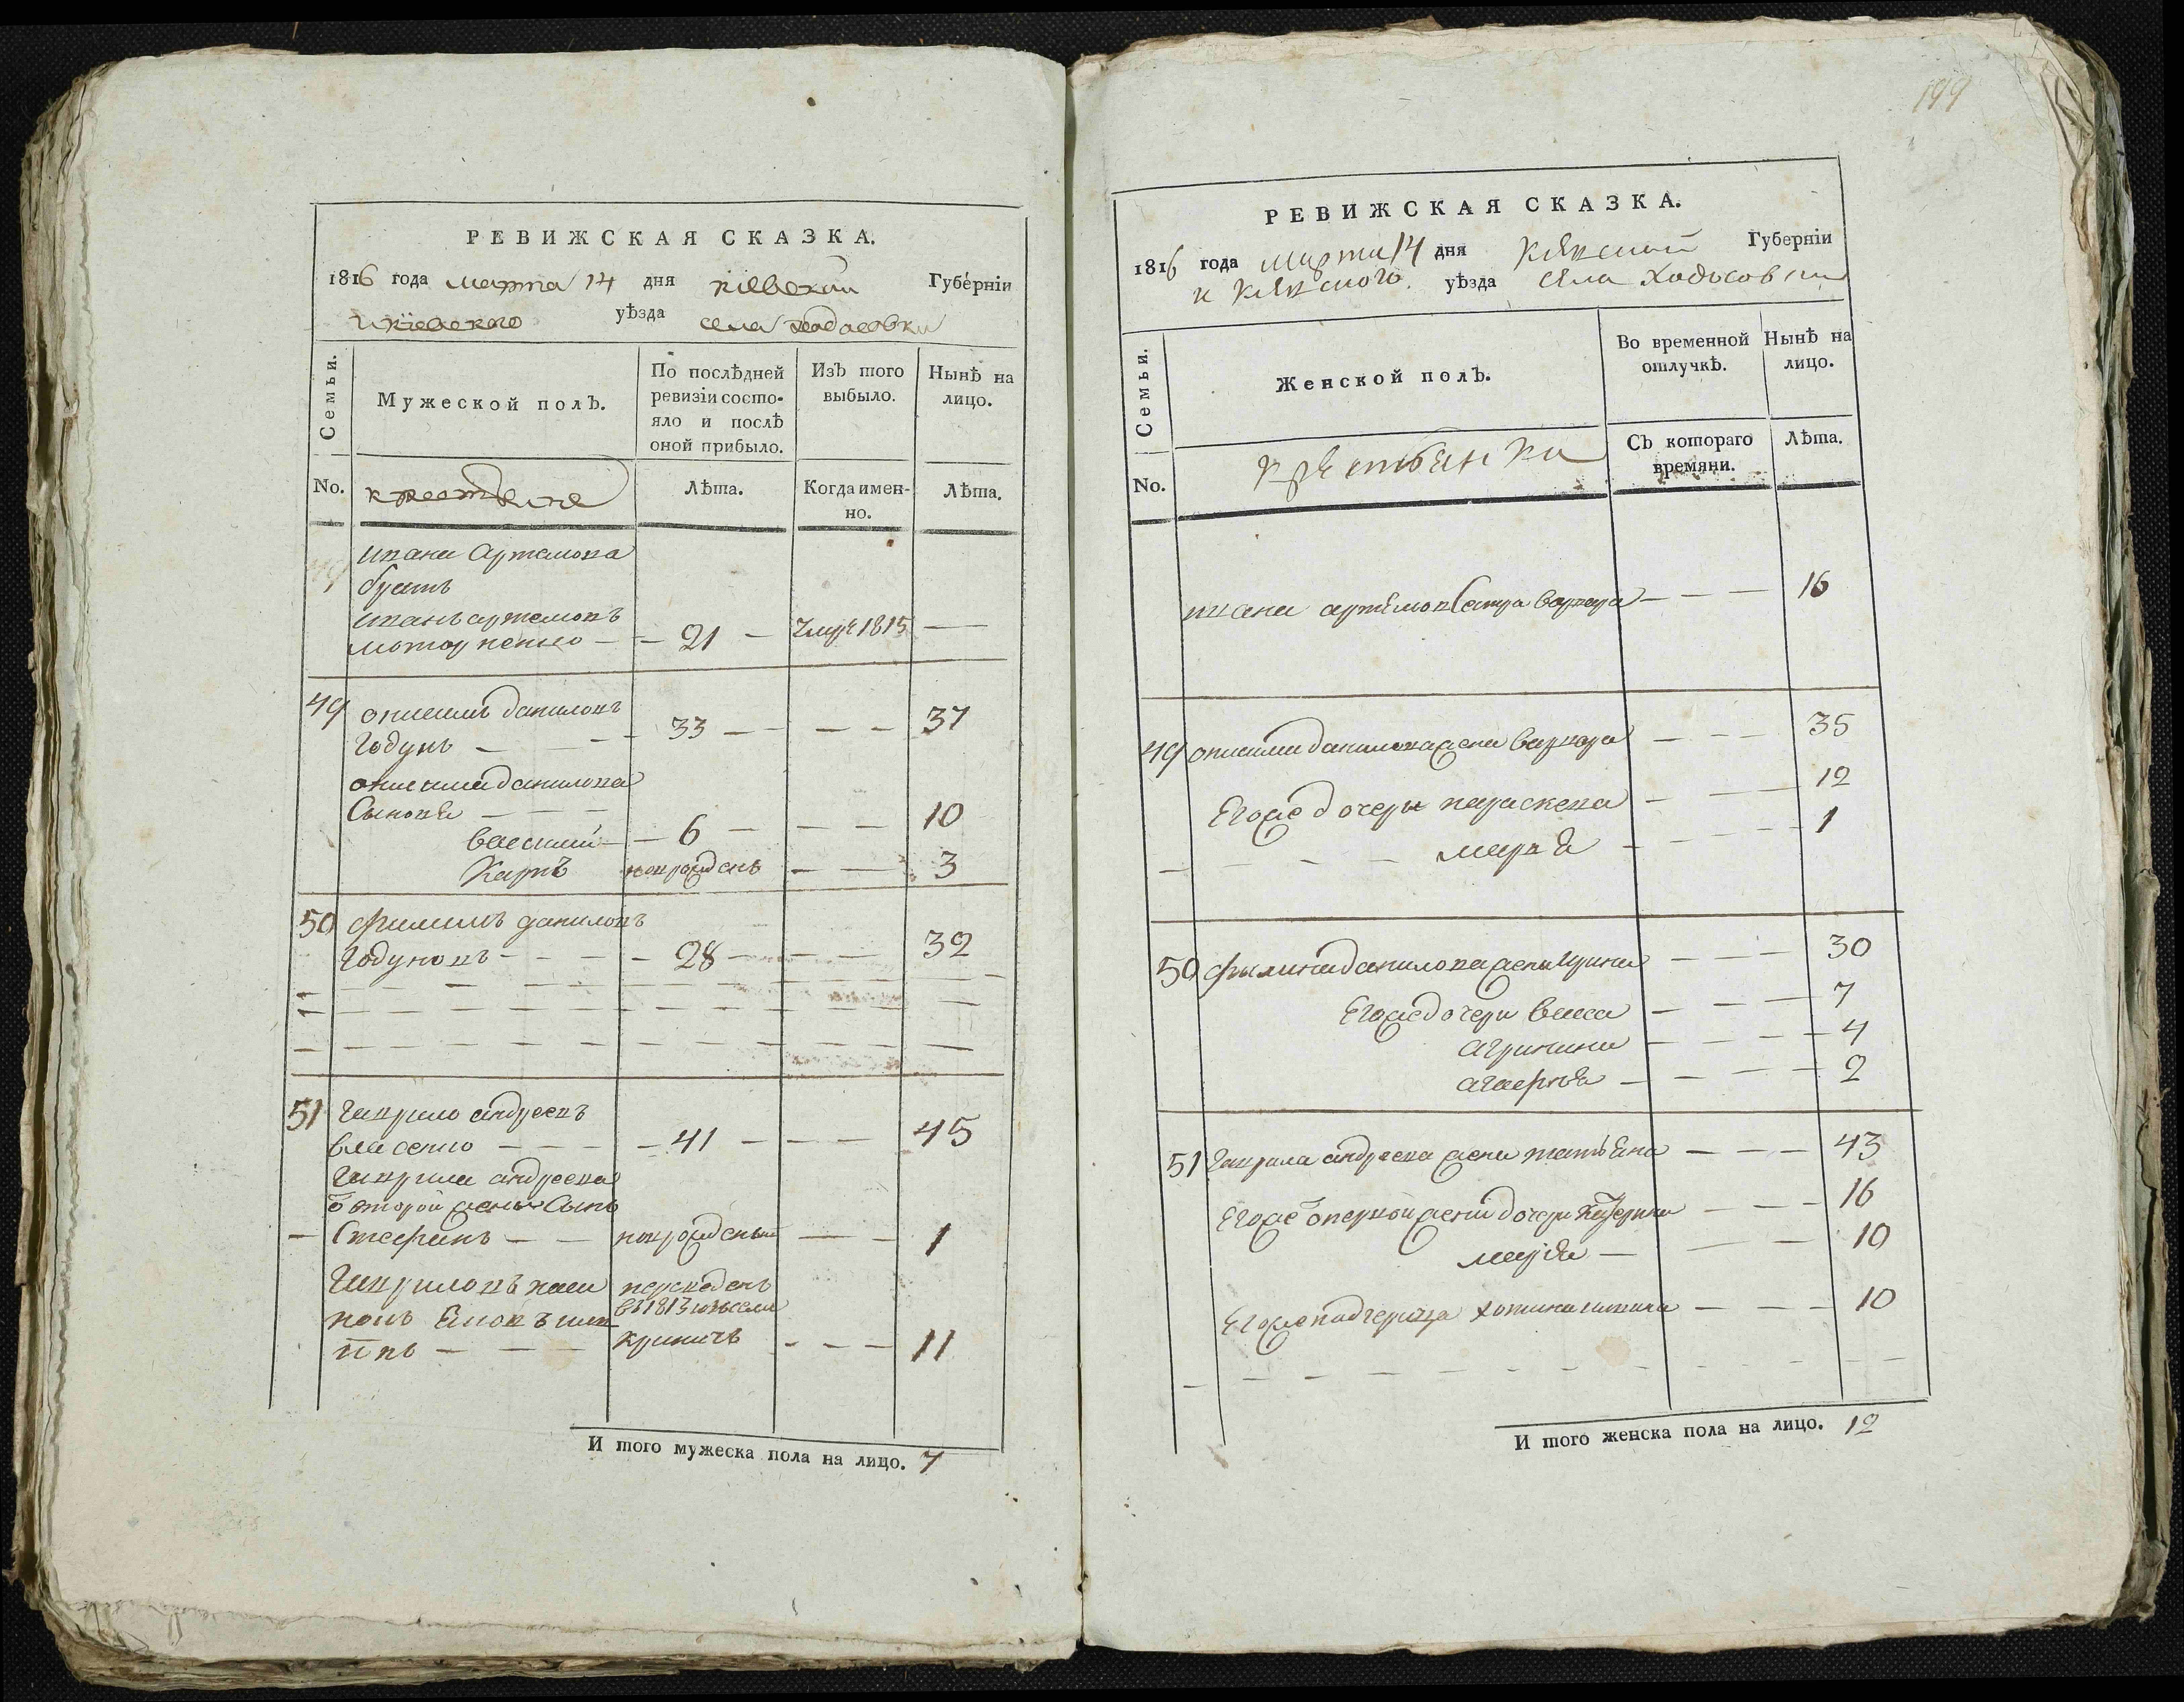 РЕВИЖСКАЯ СКАЗКА.
1816 года марта 14 дня киевской Губерніи
и киевского уѣзда села ходосовки
Семьи.
Мужеской полЪ.
По послѣдней ревизіи состояло и послѣ оной прибыло.
ИзЪ того выбыло.
Нынѣ на лицо.
No.
крестьяне
Лѣта.
Когда именно.
Лѣта.
ивана Артемова
братъ
иванъ артемовъ
моторненко — — 21 — умре 1815 —
49 онисимъ даниловъ
Годунъ — 33 — — — 37
онисима данилова
Сыновья — — —
василий — 6 — — — 10
Карпъ новрожденъ — — 3
50 филипъ даниловъ
Годуновъ — — — 28 — — — 32
51 Гаврило андреевъ
власенко — — — 41 — — — 45
Гаврила андреева
ѿ второй жены Сынъ
— Стефанъ — — новрожденый — — 1
Гавриловъ
переведенъ
въ 1813 изъ села
— — — 11
И того мужеска пола на лицо. 7
199
РЕВИЖСКАЯ СКАЗКА.
1816 года марта 14 дня киевской Губерніи
и киевского уѣзда села Ходосовки
Семьи.
Женской полЪ.
Во временной отлучкѣ.
Нынѣ на лицо.
No.
крестьянки
СЪ котораго времяни.
Лѣта.
ивана артемова Сестра варвара — — — 16
49 онисима данилова жена варвара — — — 35
Егоже дочери параскева — — — 12
марья — — — 1
50 филипа данилова жена Ирина — — — 30
Егоже дочери васса — — — 7
агрипина — — — 4
агафья — — — 2
51 Гаврила андреева жена татьяна — — — 43
Егоже ѿ первой жены дочери Катерина — — — 16
марья — — — 10
Егоже падчерица — — — 10
И того женска пола на лицо. 12